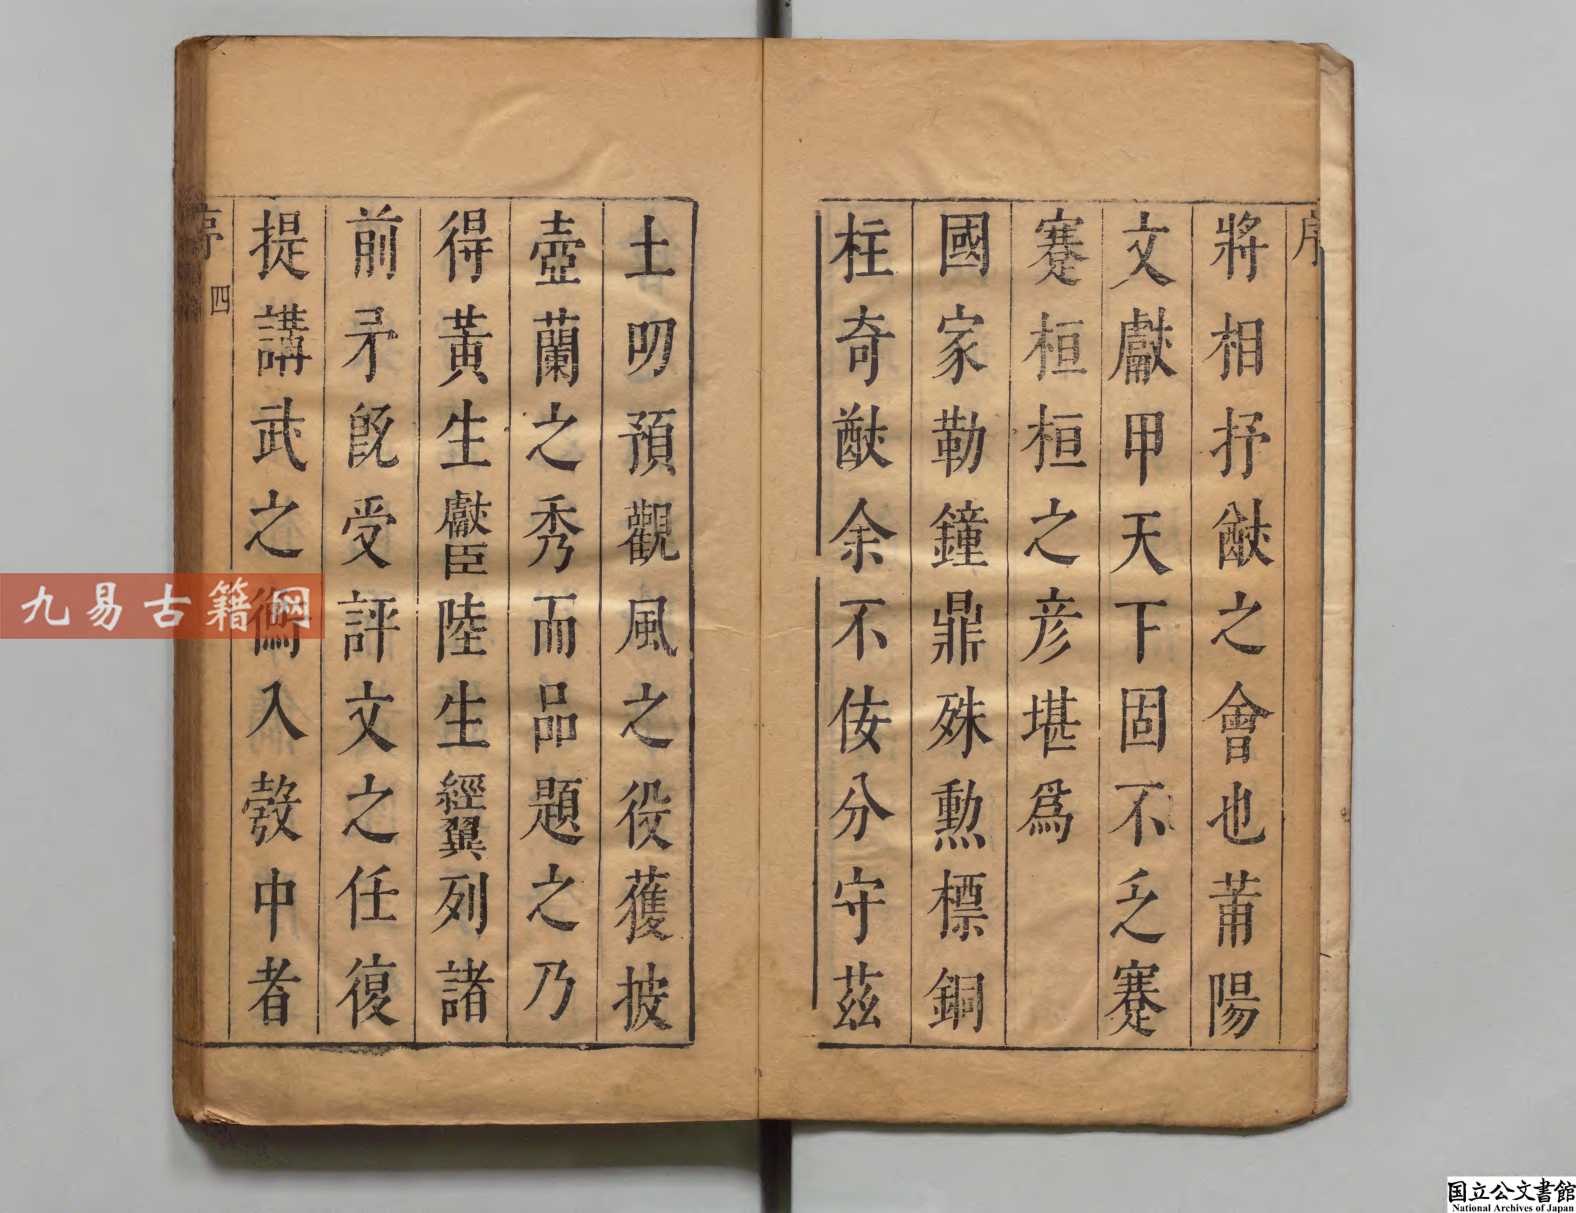 序
將相抒猷之會也莆陽
文獻甲天下固不乏蹇
蹇桓桓之彦堪爲
國家勒鐘鼎殊勲標銅
柱奇猷余不佞分守茲
土叨預觀風之役獲披
壺蘭之秀而品題之乃
得黃生獻臣陸生經翼列諸
前矛旣受評文之任復
提講武之衡入彀中者
序 四
九易古籍网
国立公文書館
National Archives of Japan